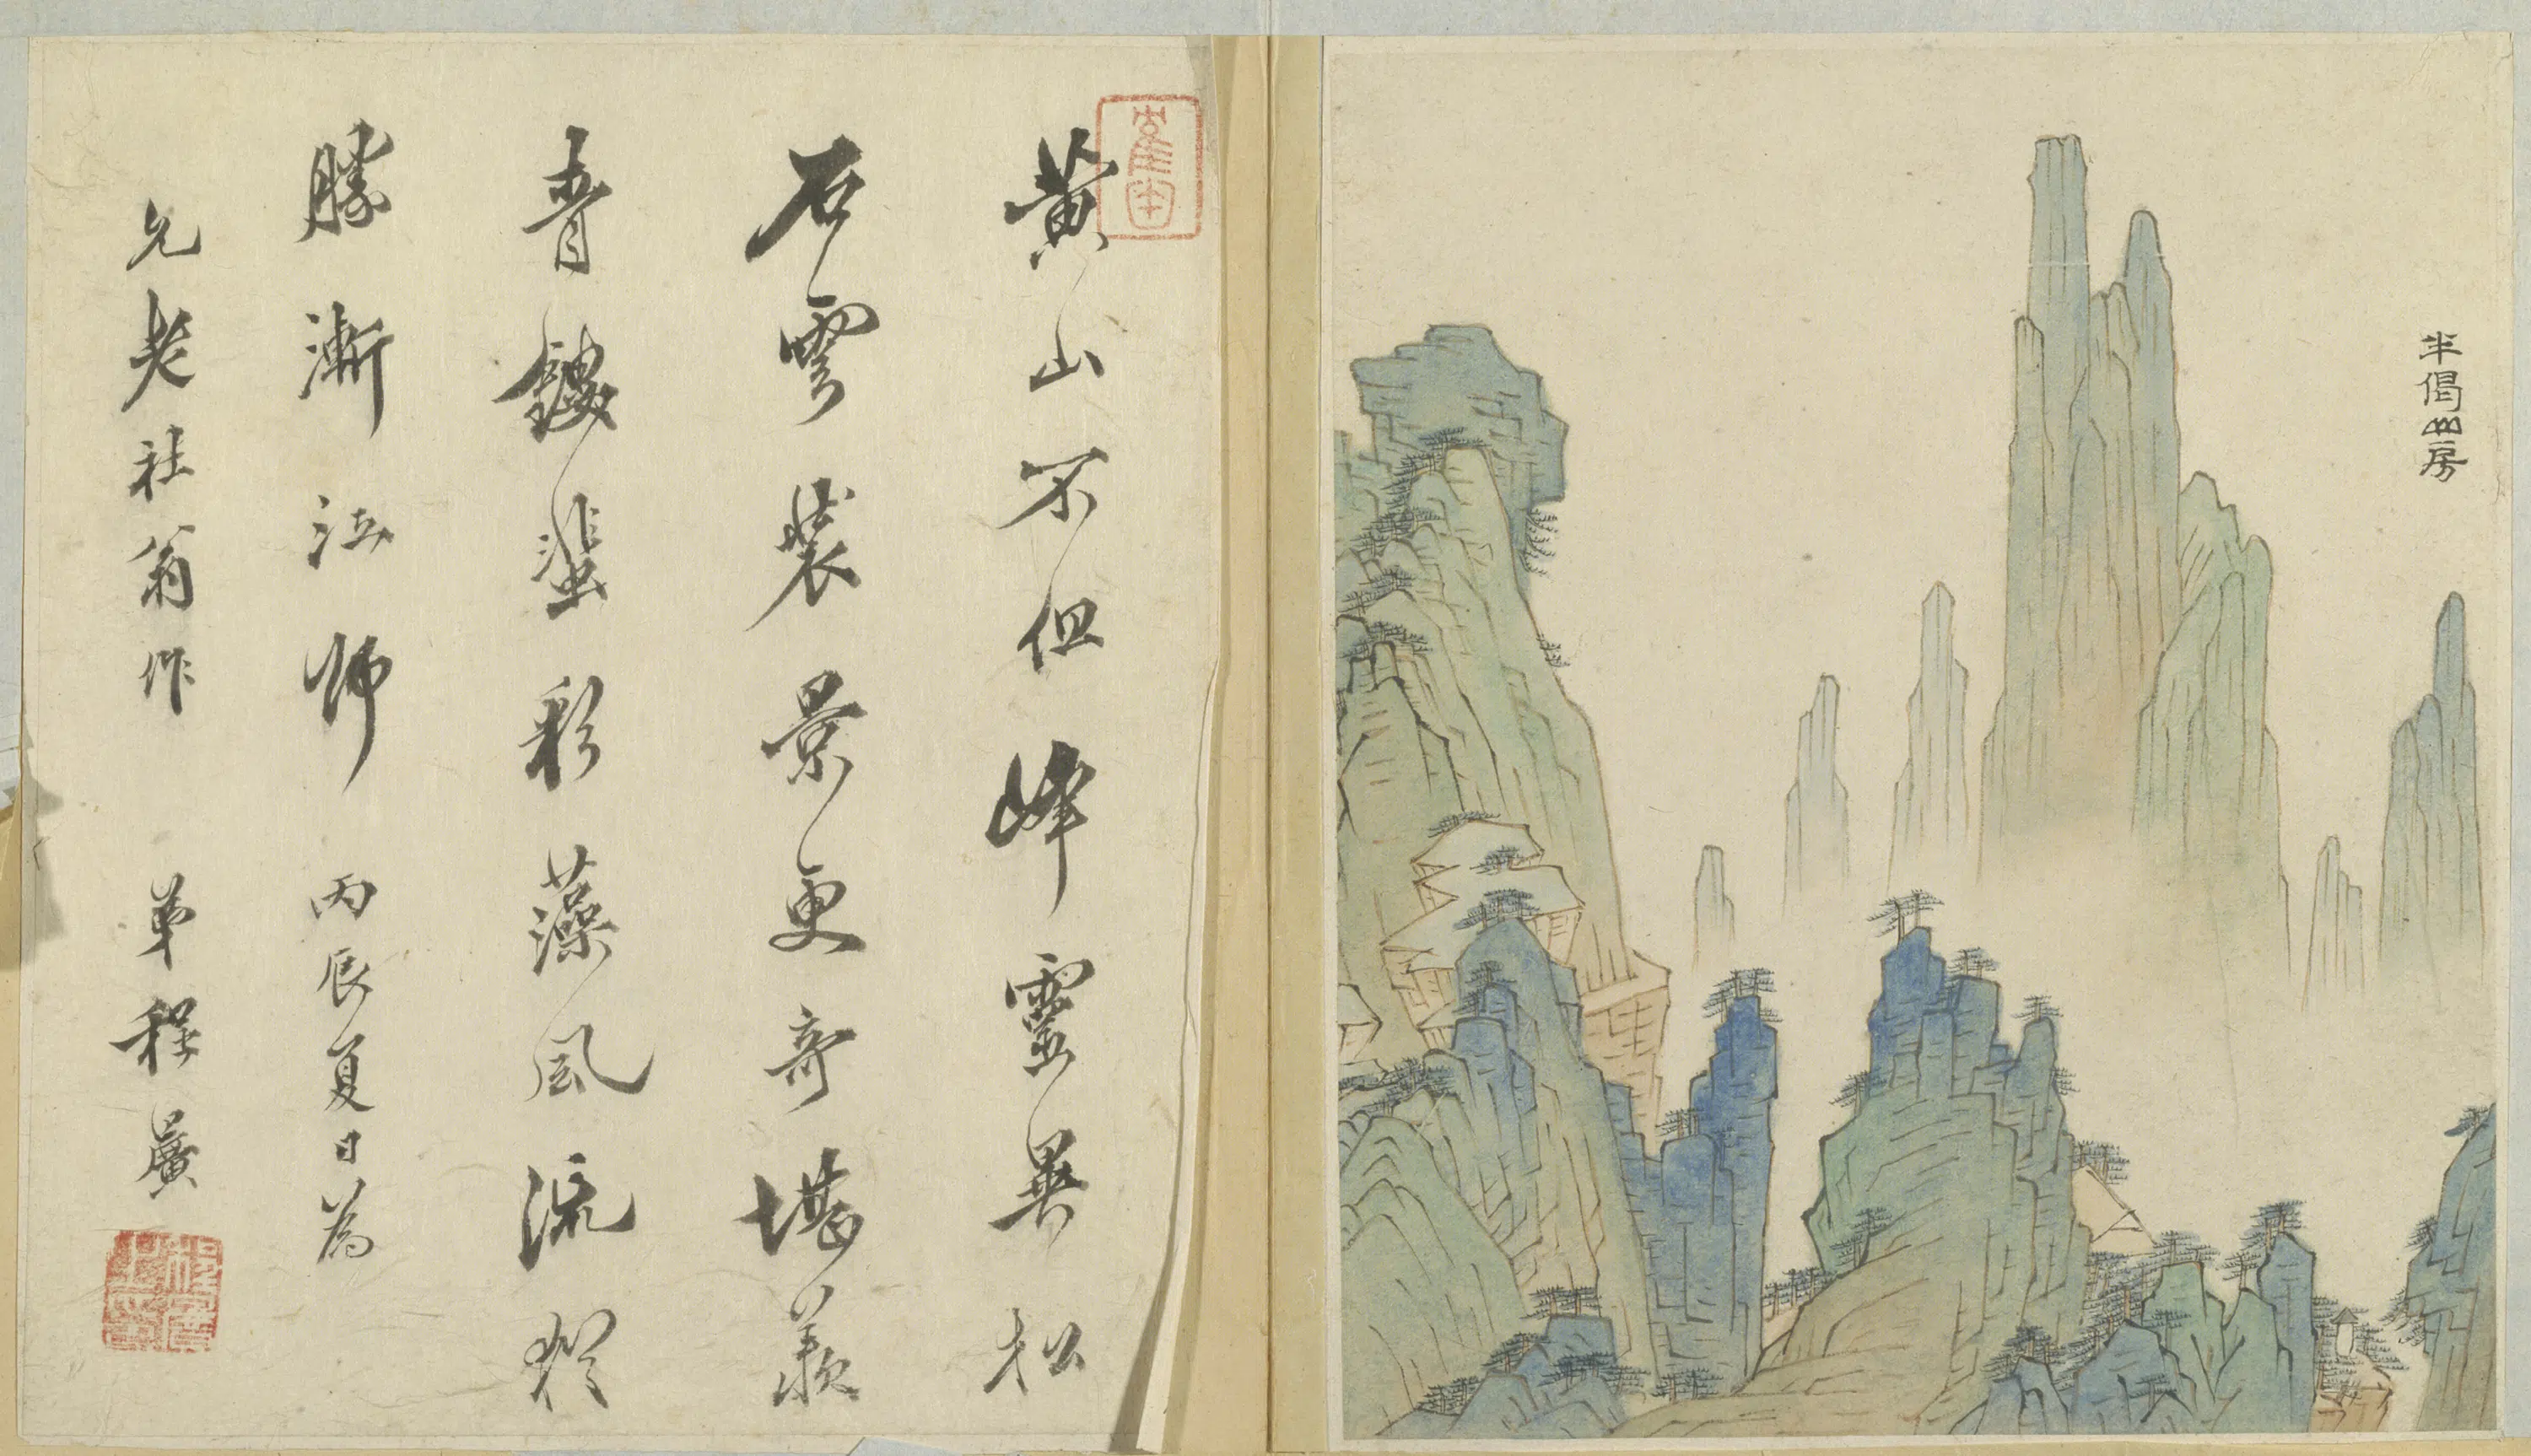 半偈山房
黃山不但峰靈異松
石雲裝景更奇堪羨
青鏤蜚彩藻風流
勝漸江師 丙辰夏日為
允老社翁作 弟程廣